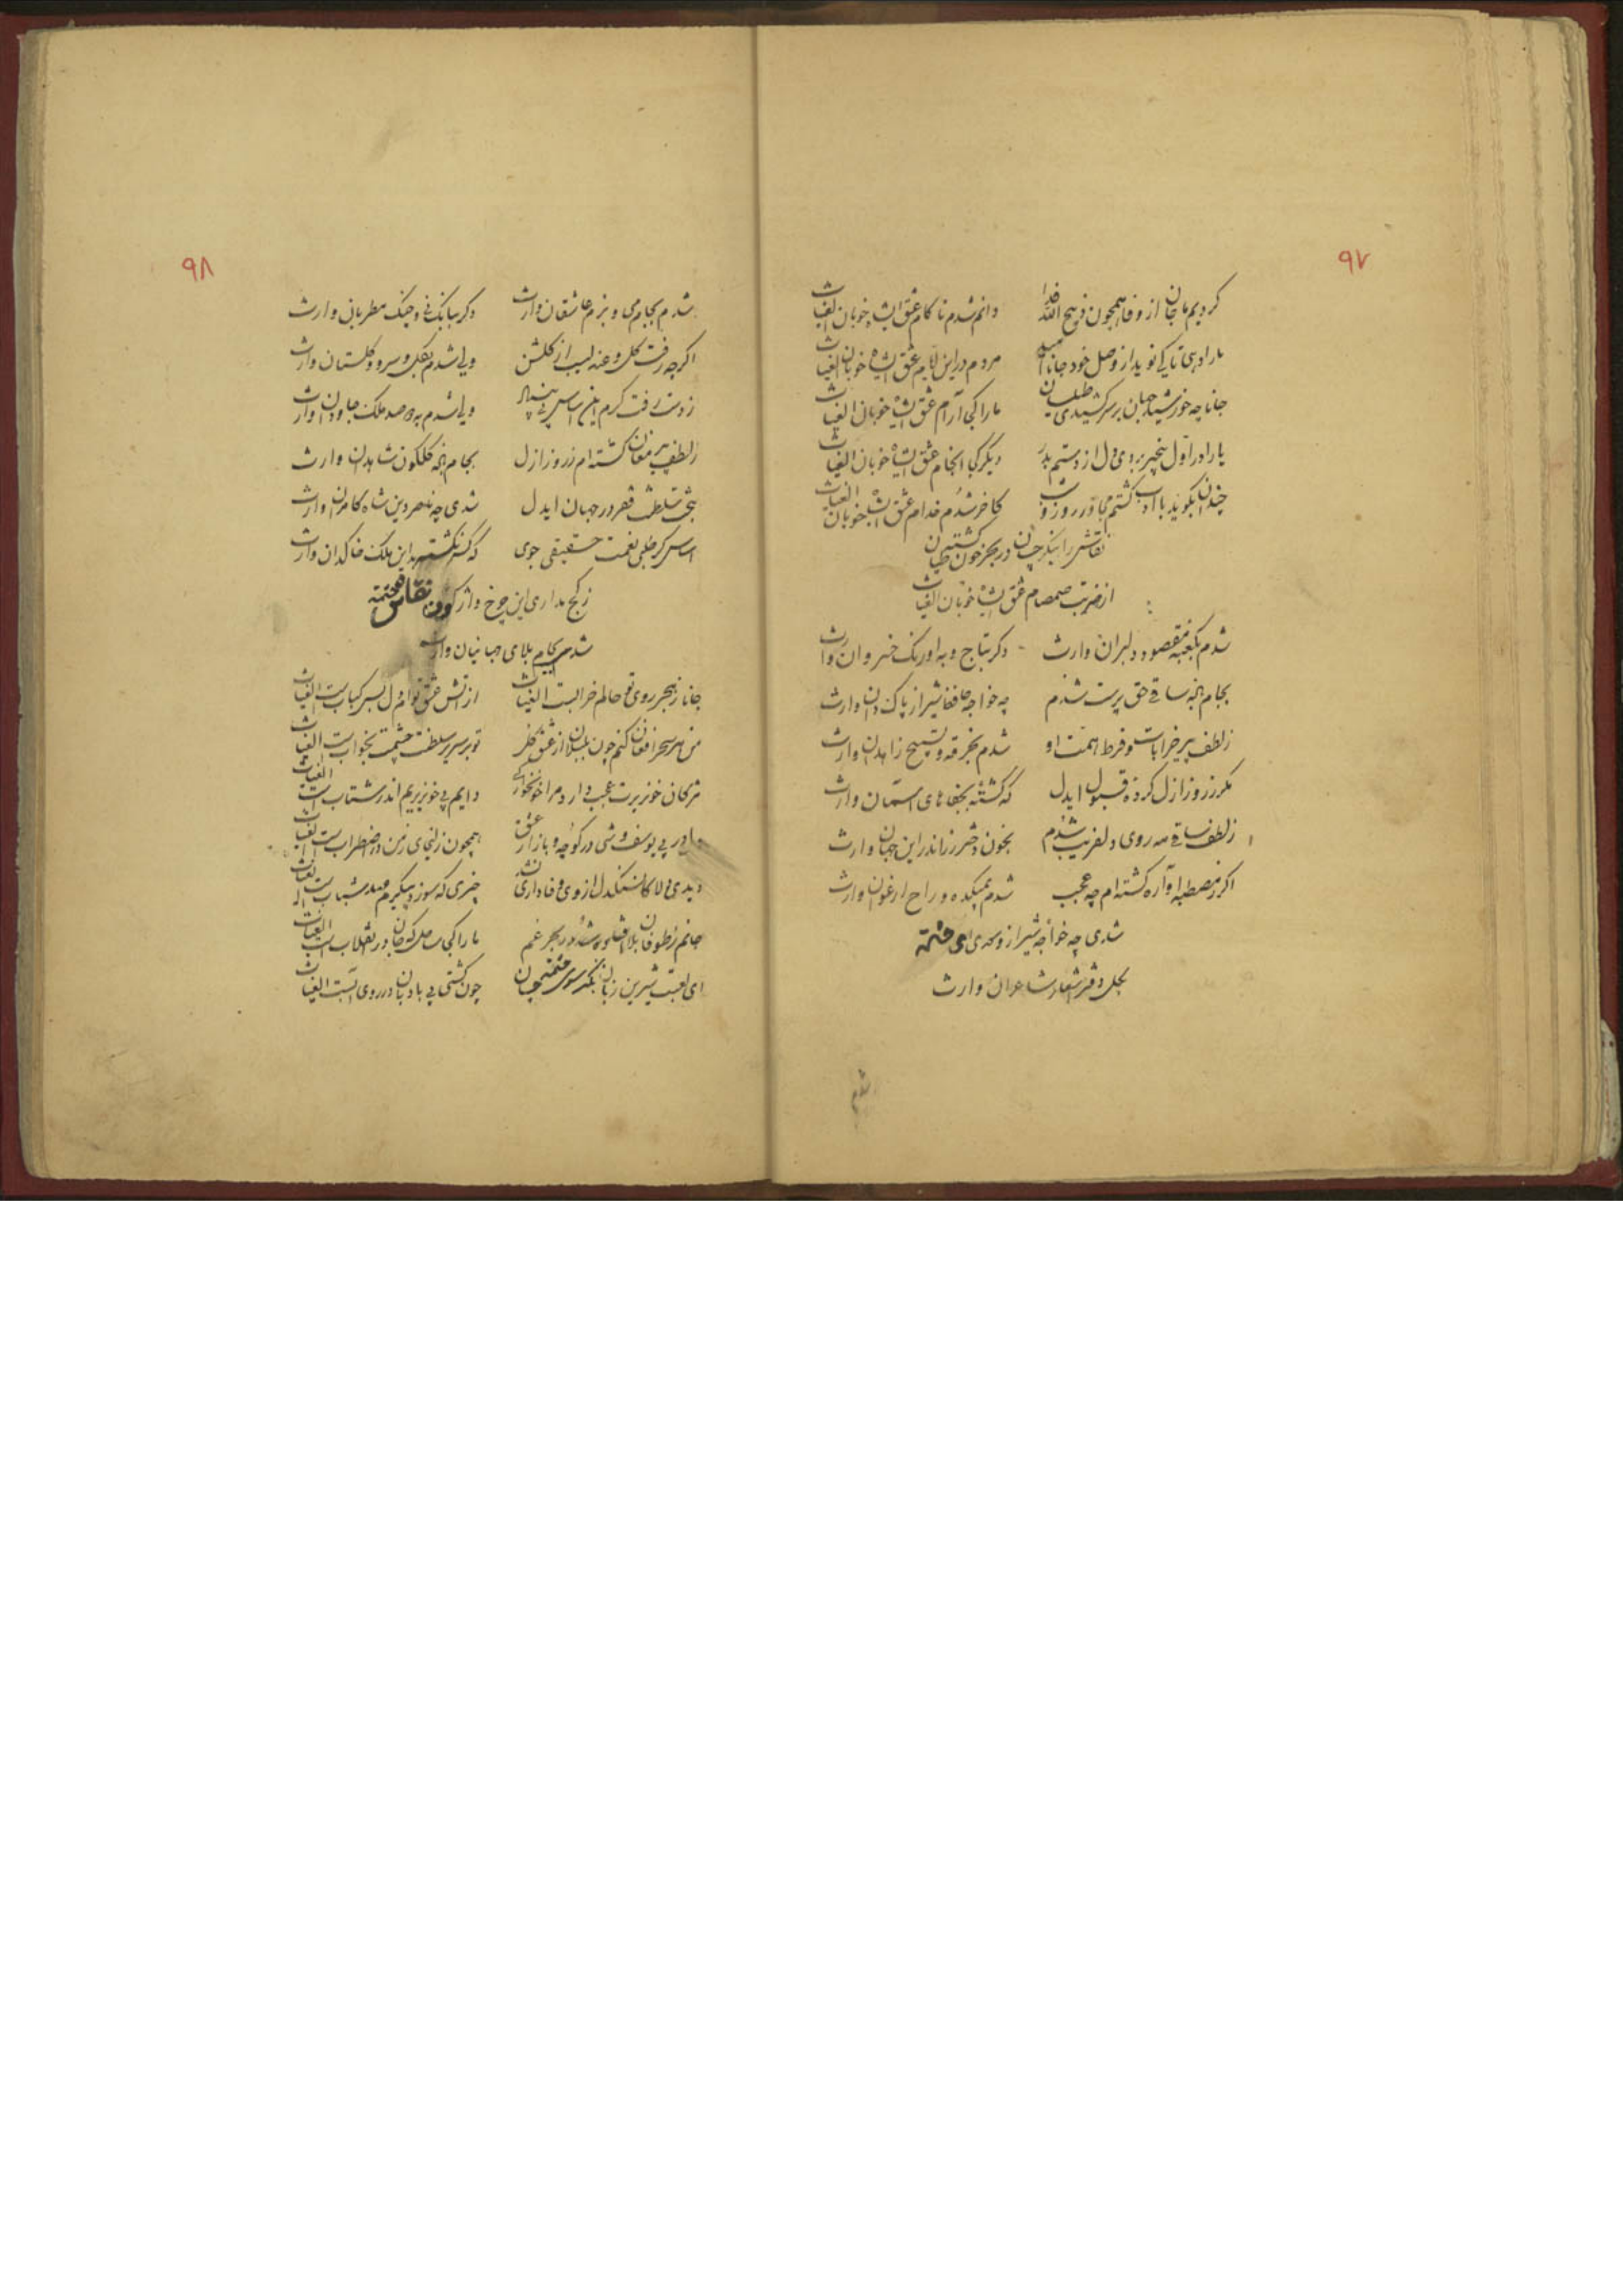 ۹۷
کردیم ما جان از وفا همچون ذبیح الله فدا دانم شدم ناکام عشق ای شاه خوبان الغیاث
ما را دهی تا کی نوید از وصل خود جانا مردم در این ایام عشق ای شاه خوبان الغیاث
جانا چه خورشید جهان بر سر کشیدی طیلسان ما را کجا آرام عشق ای شاه خوبان الغیاث
یارا در اول بردی دل از دستم دیگر کجا انجام عشق ای شاه خوبان الغیاث
چندان بگوید با ادب گشتم مجاور روز و شب کاخر شدم خدام عشق ای شاه خوبان الغیاث
نقاش را بنگر چسان در بحر خون کشتی
از ضربت صمصام عشق ای شاه خوبان الغیاث
شدم بکعبه مقصود دلبران وارث دگر بتاج و به اورنگ خسروان وارث
بجام باده ساقی حق پرست شدم چه خواجه حافظ شیراز پاک دان وارث
ز لطف پیر خرابات و فرط همت او شدم بخرقه و تسبیح زاهدان وارث
مگر ز روز ازل کرده قبول ایدل که گشته بجفاهای آسمان وارث
ز لطف ساقی مه روی دلفریب شدم بخون دختر رز اندر این جهان وارث
اگر ز مصطبه آواره گشته ام چه عجب شدم بمیکده و راح ارغوان وارث
شدی چه خواجه شیراز و سعدی ای
بکل دفتر اشعار شاعران وارث
شدم
۹۸
شدم بجام می و بزم عاشقان وارث دگر ببانگ نی و چنگ مطربان وارث
اگرچه رفت گل و عندلیب از گلشن ولی شدم بگل و سرو و گلستان وارث
ز دست رفت گرم این اساس ولی شدم به دو صد ملک جاودان وارث
ز لطف پیر مغان گشته ام ز روز ازل بجام باده گلگون شاهدان وارث
سلطنت فقر در جهان ایدل شدی چه ناصر دین شاه کامران وارث
اساس گر طلبی نعمت حقیقی جوی که کس نگشته بدین ملک خاکدان وارث
ز کج مداری این چرخ واژگون نقاش
شدم بجام بلای جهانیان وارث
جانا ز هجر روی تو حالم خرابست الغیاث از آتش عشق توام دل بس کبابست الغیاث
من هر سحر افغان کنم چون بلبلان از عشق گل تو بر سریر سلطنت چشمت بخوابست الغیاث
مژگان خونریزت عجب دارد مرا دایم پی خونریزیم اندر شتابست الغیاث
ما در پی یوسف وشی در کوچه و بازار عشق همچون زلیخای زمن در اضطرابست الغیاث
دیدی دلا کان سنگدل از وی وفاداری نشد چیزی که سوزد پیکرم عهد شبابست الغیاث
جانم ز طوفان بلا شد در بحر غم ما را کجا ساحل که جان در انقلابست الغیاث
ای لعبت شیرین زبان بنگر سوی چون کشتی بی بادبان در روی آبست الغیاث